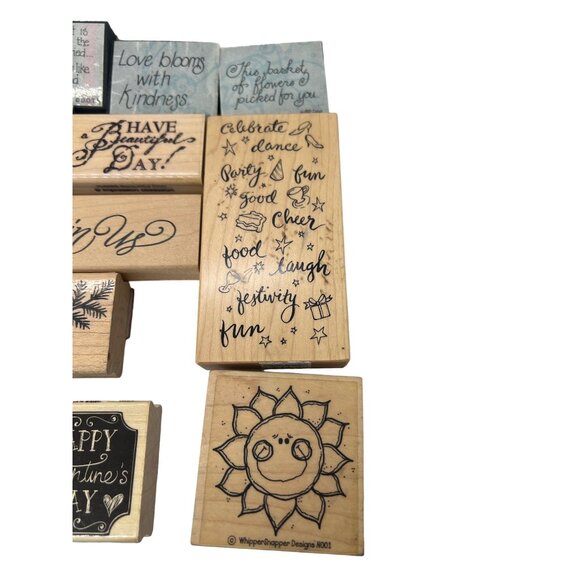 t is
the
ned...
like
d
Love blooms
with
Kindness
This basket
of flowers
picked for you
HAVE
a Beautiful
DAY!
n Us
Celebrate
dance
Party fun
good
Cheer
food
laugh
festivity
fun
APPY
entine's
AY
© WhipperSnapper Designs N001